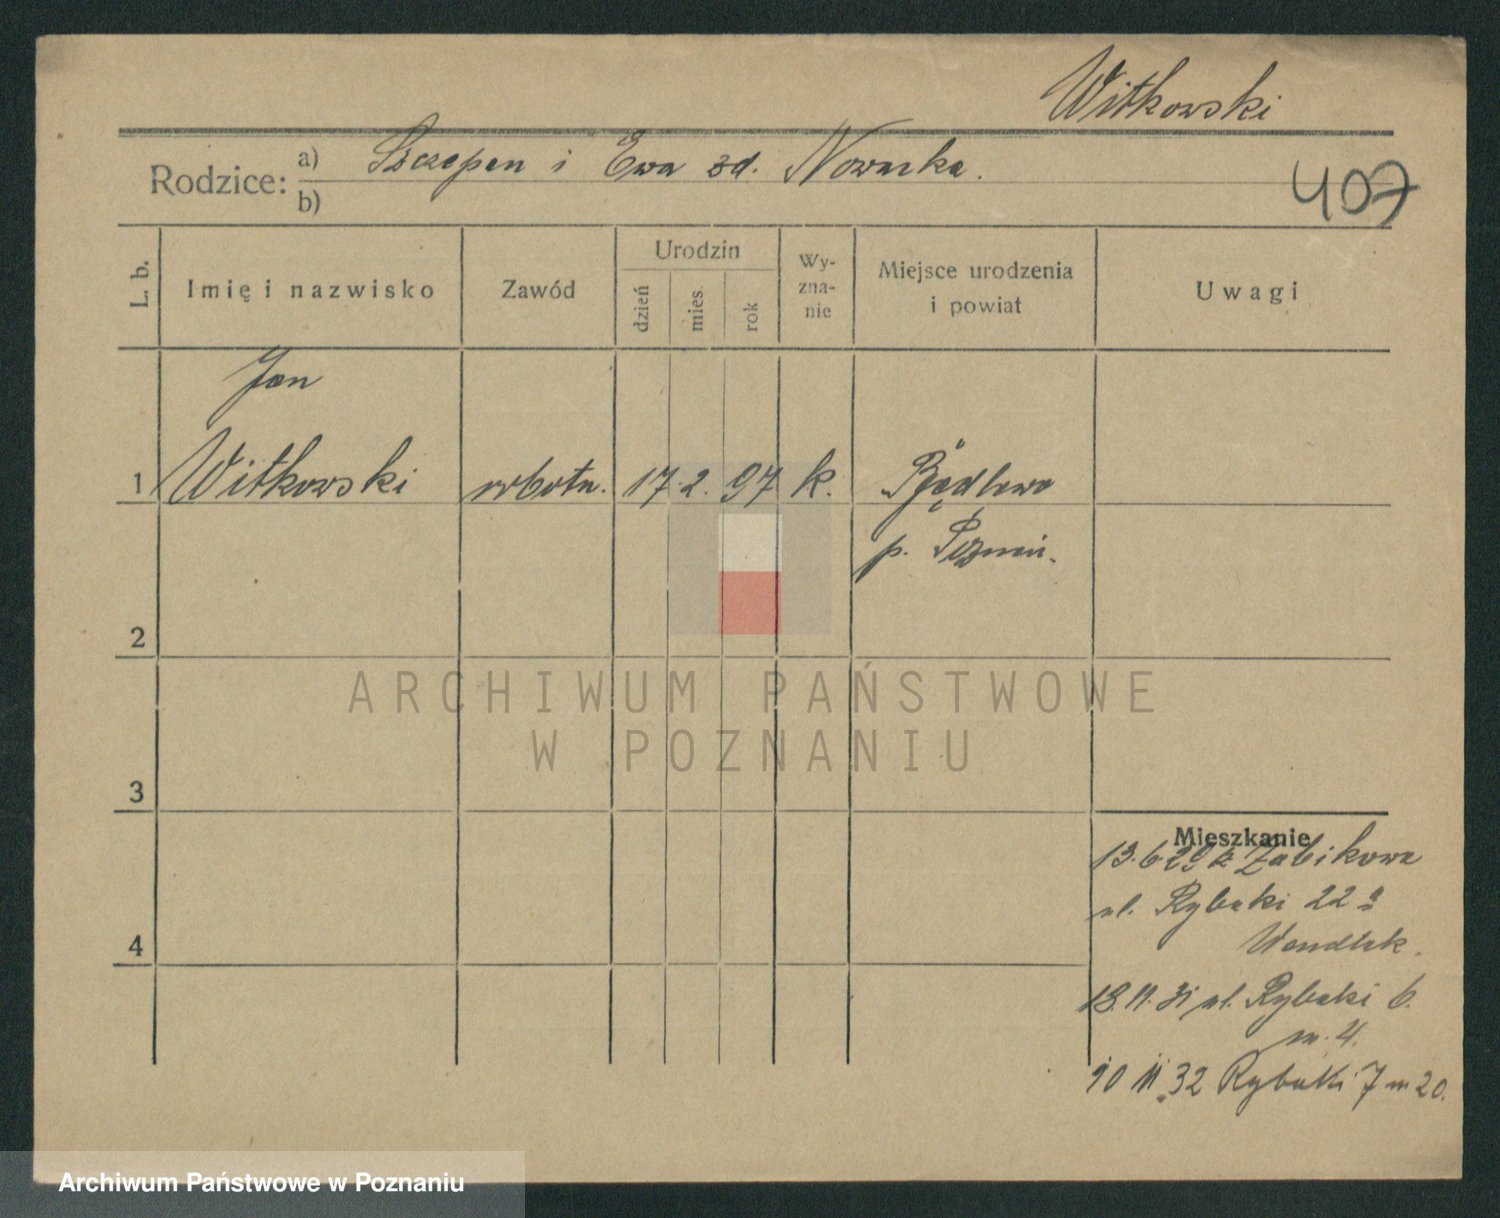 Witkowski
Rodzice: a) Szczepan i Ewa zd. Nowacka.
b)
407
L. b.
Imię i nazwisko
Zawód
Urodzin
dzień
mies.
rok
Wy-
zna-
nie
Miejsce urodzenia
i powiat
Uwagi
Jan
1 Witkowski robotn. 17. 2. 97 k. Będlewo
p. Poznań.
2
ARCHIWUM PAŃSTWOWE
W POZNANIU
3
Mieszkanie
13.6 29 z Żabikowa
ul. Rybaki 22 a
4
18.11.31 ul. Rybaki 6.
m. 4.
10 11 32 Rybaki 7 m 20.
Archiwum Państwowe w Poznaniu